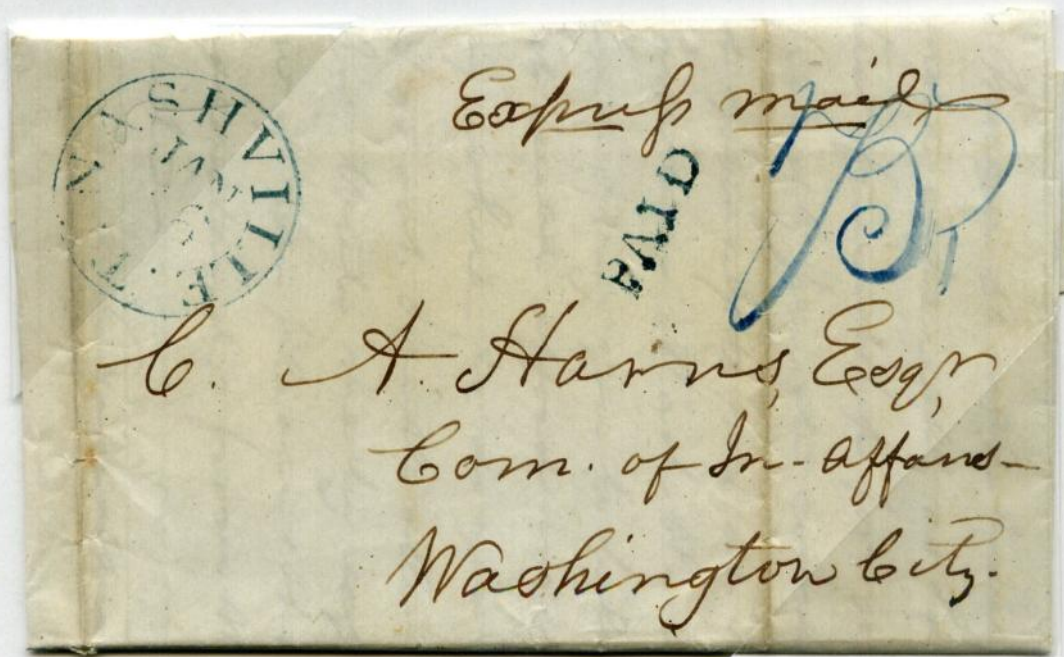 NASHVILLE T.
JAN
Express mail
PAID
C. A. Harris, Esqr,
Com. of In- affairs-
Washington City.